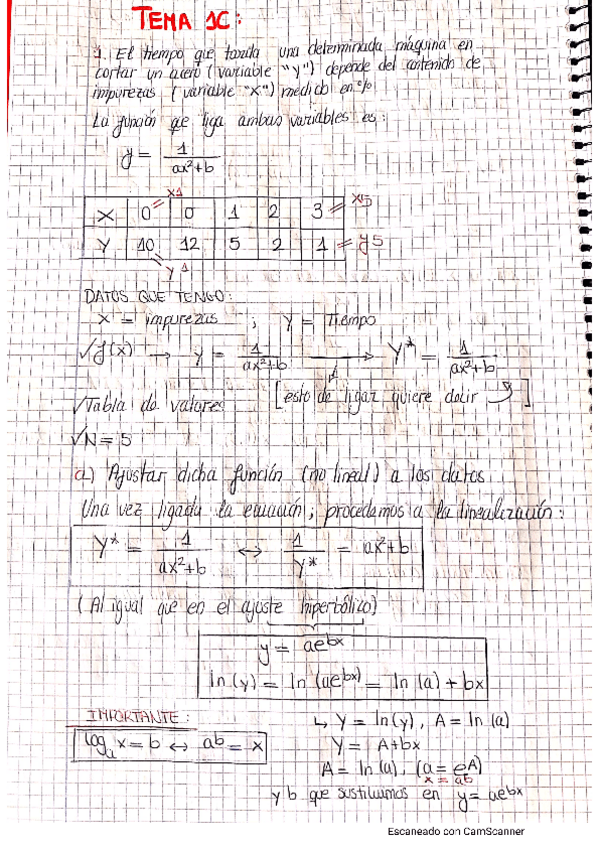 TEMA 1C:
1. El tiempo que tarda una determinada máquina en
cortar un acero (variable "y") depende del contenido de
impurezas (variable "x") medido en %
La función que liga ambas variables es:
y = 1/(ax²+b)
x1 x5
X 0 0 1 2 3
Y 10 12 5 2 1 = y5
y1
DATOS QUE TENGO:
x = impurezas ; y = Tiempo
√ f(x) → y = 1/(ax²+b) → y* = 1/(ax²+b)
√ Tabla de valores [esto de ligar quiere decir ]
√ N = 5
a) Ajustar dicha función (no lineal) a los datos.
Una vez ligada la ecuación, procedemos a la linealización:
y* = 1/(ax²+b) ↔ 1/y* = ax²+b
(Al igual que en el ajuste hiperbólico)
y = ae^bx
ln(y) = ln(ae^bx) = ln(a) + bx
IMPORTANTE: ↳ Y = ln(y), A = ln(a)
log_a x = b ↔ a^b = x Y = A+bx
A = ln(a), (a = e^A)
x = a^b
y b que sustituimos en y = ae^bx
Escaneado con CamScanner